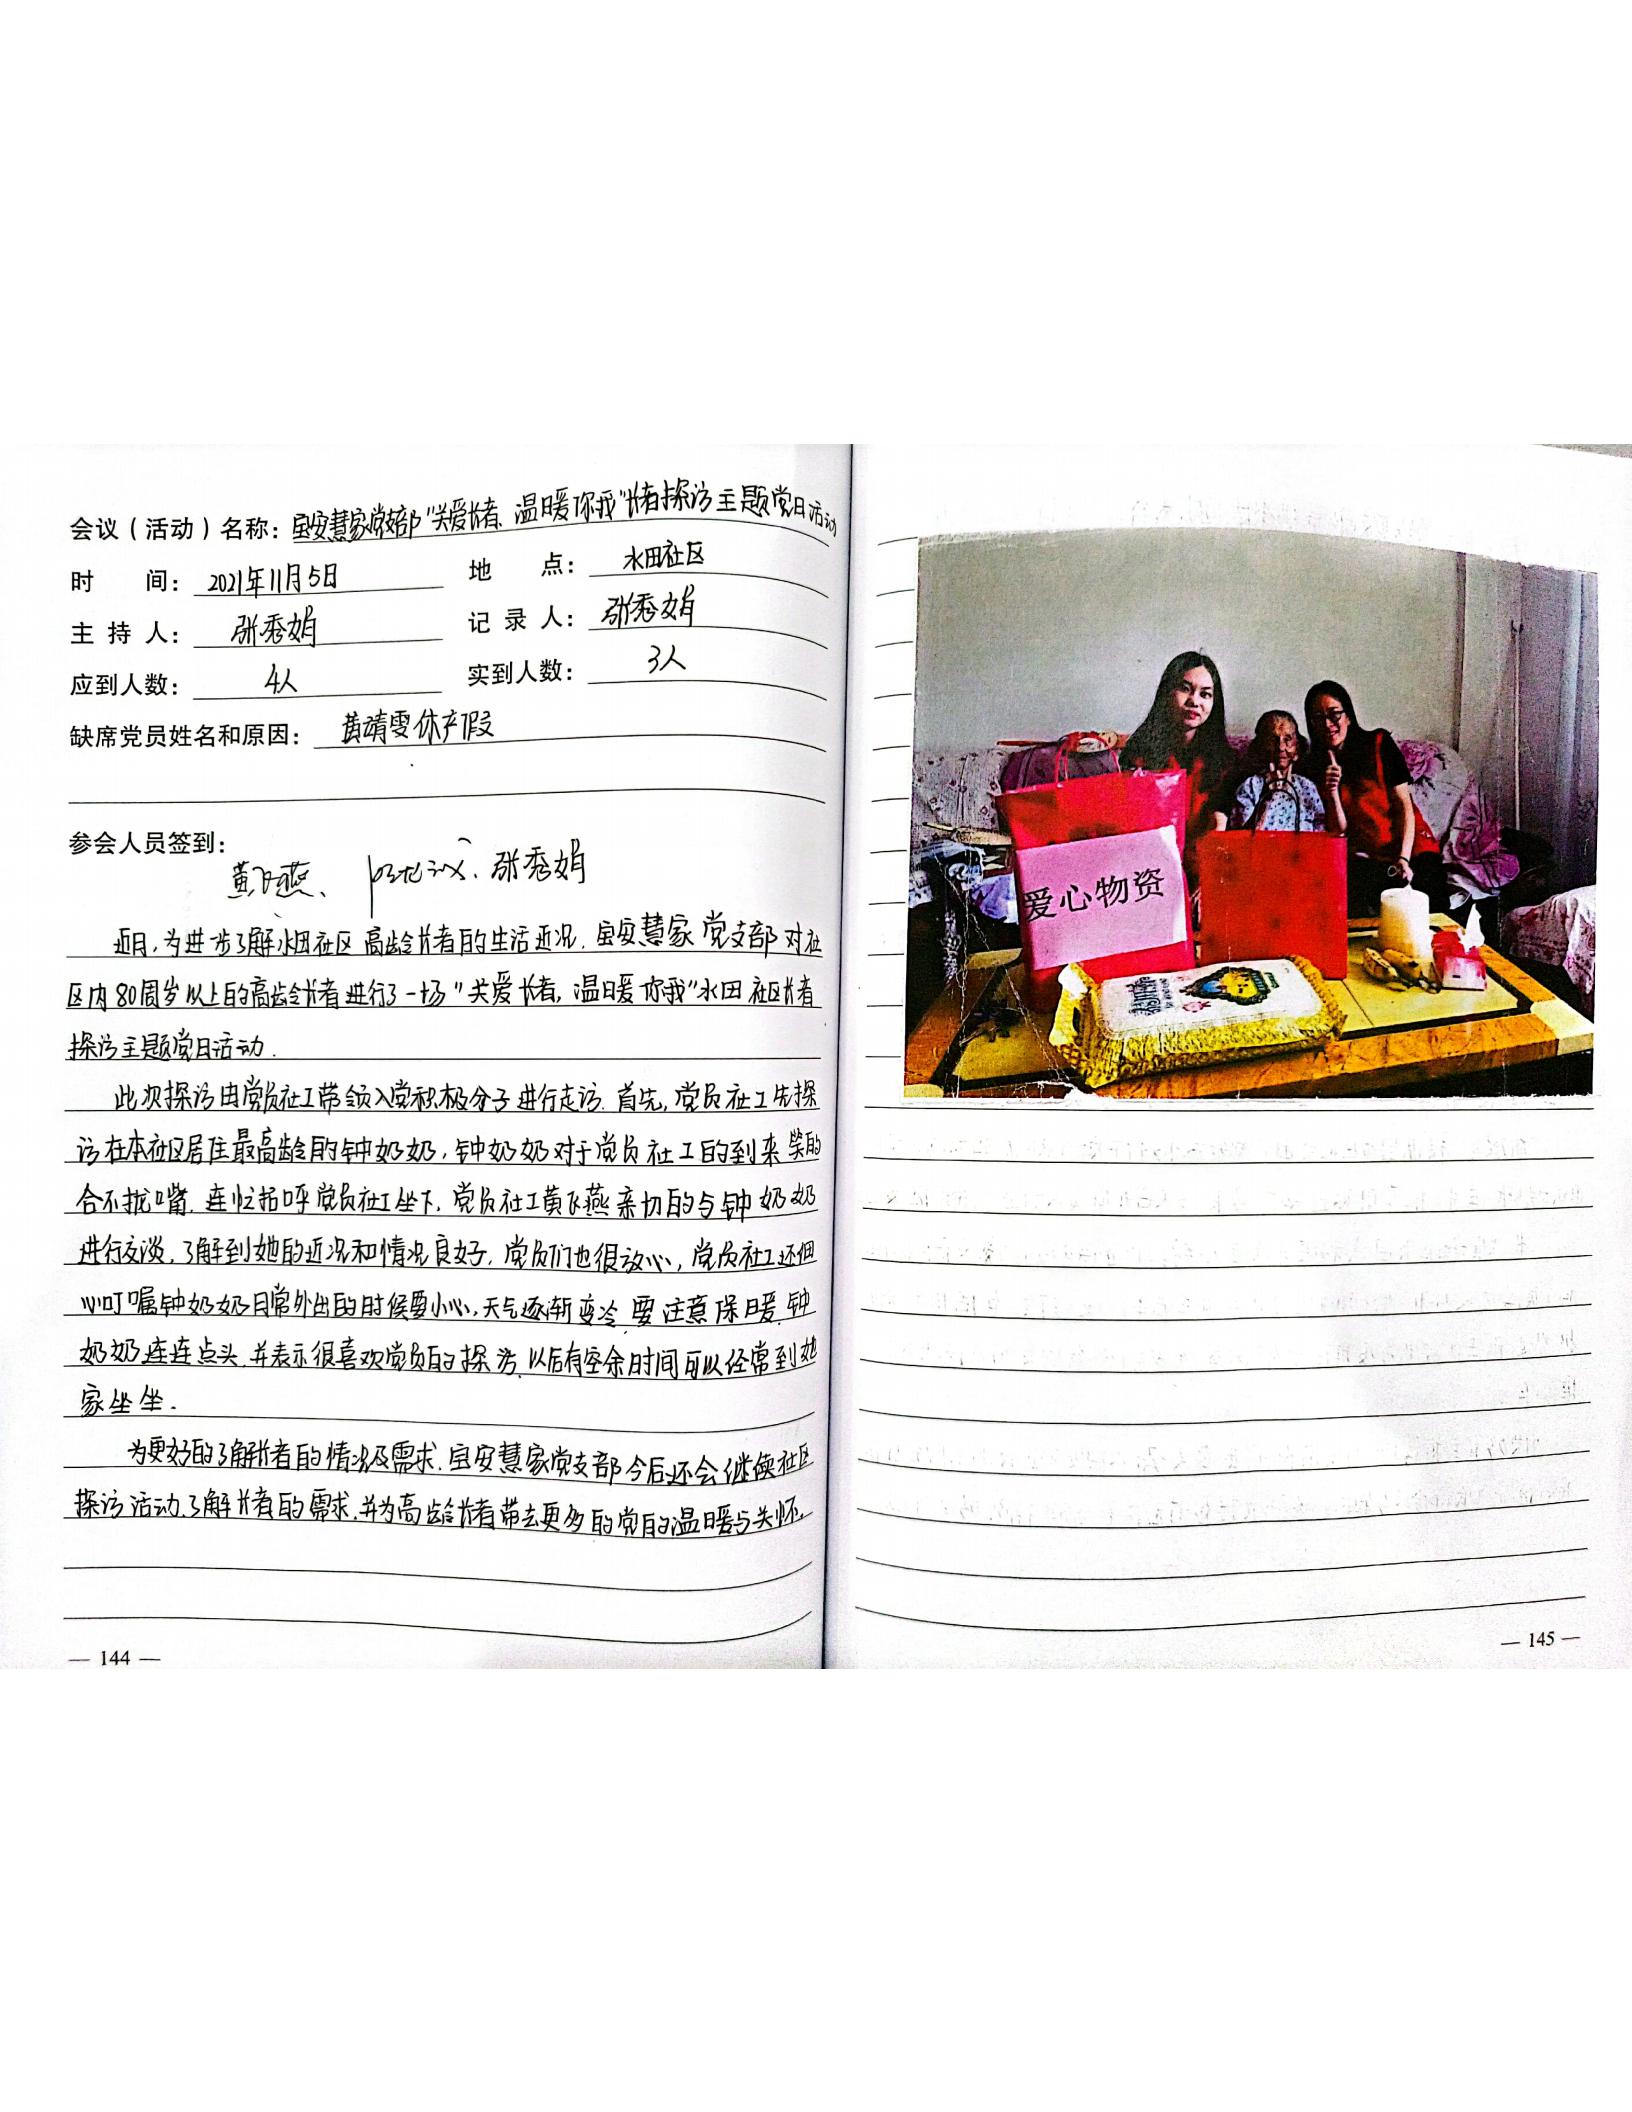 会议（活动）名称：宝安慧家党支部“关爱长者、温暖你我”长者探访主题党日活动
时 间：2021年11月5日 地 点：水田社区
主 持 人：张秀娟 记 录 人：张秀娟
应到人数：4人 实到人数：3人
缺席党员姓名和原因：黄靖雯休产假
参会人员签到：
黄飞燕、 张秀娟
近日，为进一步了解水田社区高龄长者的生活近况，宝安慧家党支部对社
区内80周岁以上的高龄长者进行了一场“关爱长者，温暖你我”水田社区长者
探访主题党日活动.
此次探访由党员社工带领入党积极分子进行走访. 首先，党员社工先探
访在本社区居住最高龄的钟奶奶，钟奶奶对于党员社工的到来笑的
合不拢嘴. 连忙招呼党员社工坐下. 党员社工黄飞燕亲切的与钟奶奶
进行交谈，了解到她的近况和情况良好，党员们也很放心，党员社工还细
心叮嘱钟奶奶日常外出的时候要小心，天气逐渐变冷，要注意保暖. 钟
奶奶连连点头，并表示很喜欢党员的探访，以后有空余时间可以经常到她
家坐坐.
为更好的了解长者的情况及需求，宝安慧家党支部今后还会继续社区
探访活动，了解长者的需求，并为高龄长者带去更多的党的温暖与关怀.
— 144 —
爱心物资
— 145 —